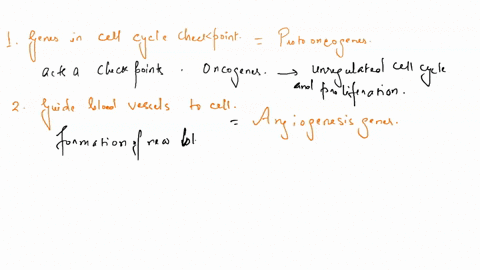 1. Genes in cell cycle checkpoint. = Protooncogenes.
act a checkpoints. Oncogenes. → unregulated cell cycle
and proliferation.
2. Guide blood vessels to cell. = Angiogenesis genes.
formation of new bl